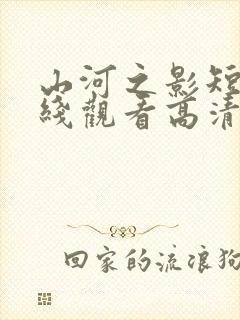 山河之影短
綫觀看高清
回家的流浪狗